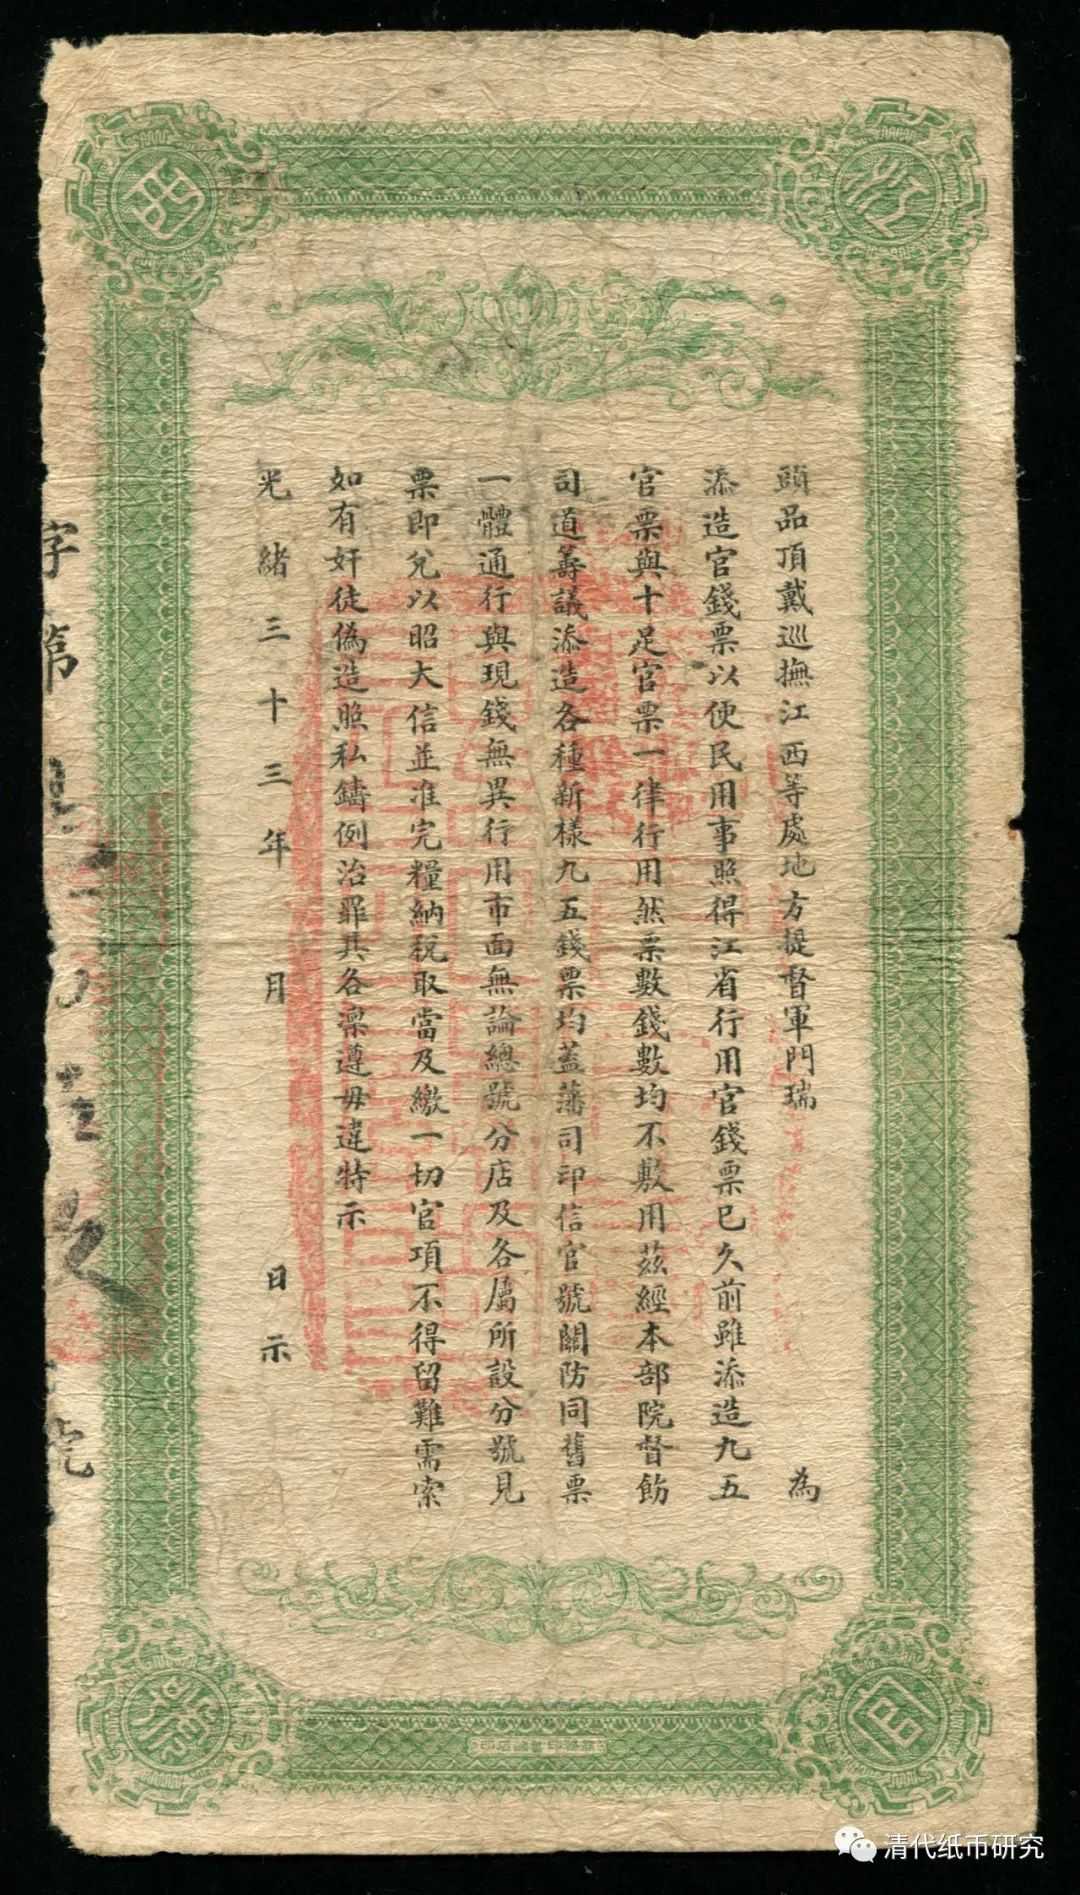 江
西
官
頭品頂戴巡撫江西等處地方提督軍門瑞 為
添造官錢票以便民用事照得江省行用官錢票已久前雖添造九五
官票與十足官票一律行用然票數錢數均不敷用茲經本部院督飭
司道籌議添造各種新樣九五錢票均蓋藩司印信官號關防同舊票
一體通行與現錢無異行用市面無論總號分店及各屬所設分號見
票即兌以昭大信並准完糧納稅取當及繳一切官項不得留難需索
如有奸徒偽造照私鑄例治罪其各凜遵毋違特示
光緒三十三年 月 日示
字第
清代纸币研究